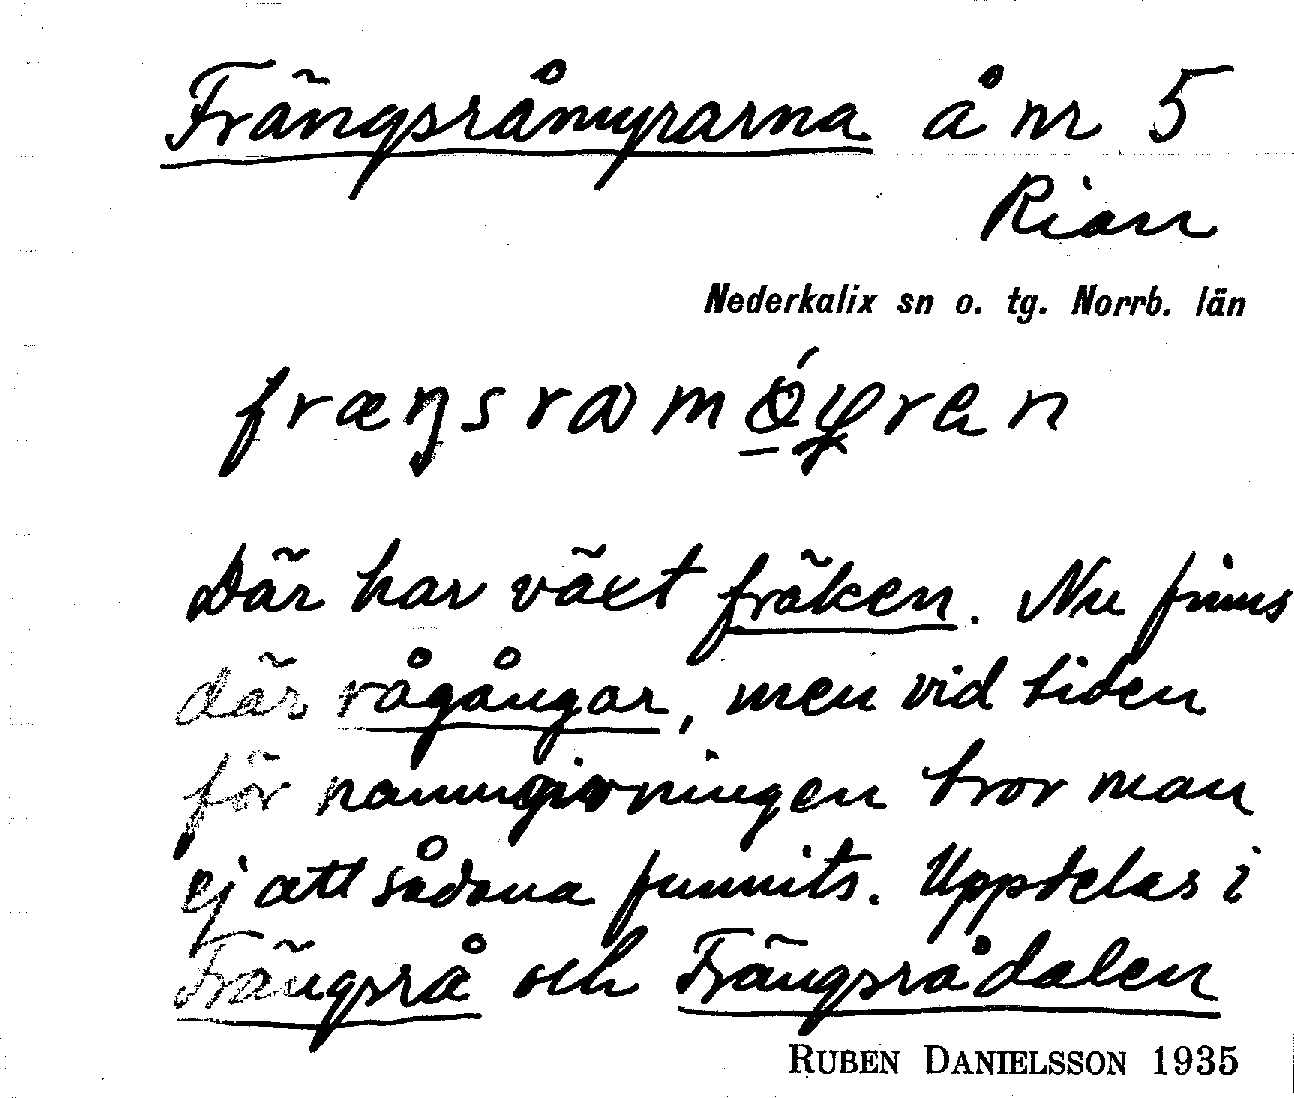 Frängsråmyrarna å nr 5
Rian
Nederkalix sn o. tg. Norrb. län
Där har växt fräken. Nu finns
där rågångar, men vid tiden
för namngivningen tror man
ej att sådana funnits. Uppdelas i
Frängsrå och Frängsrådalen
RUBEN DANIELSSON 1935